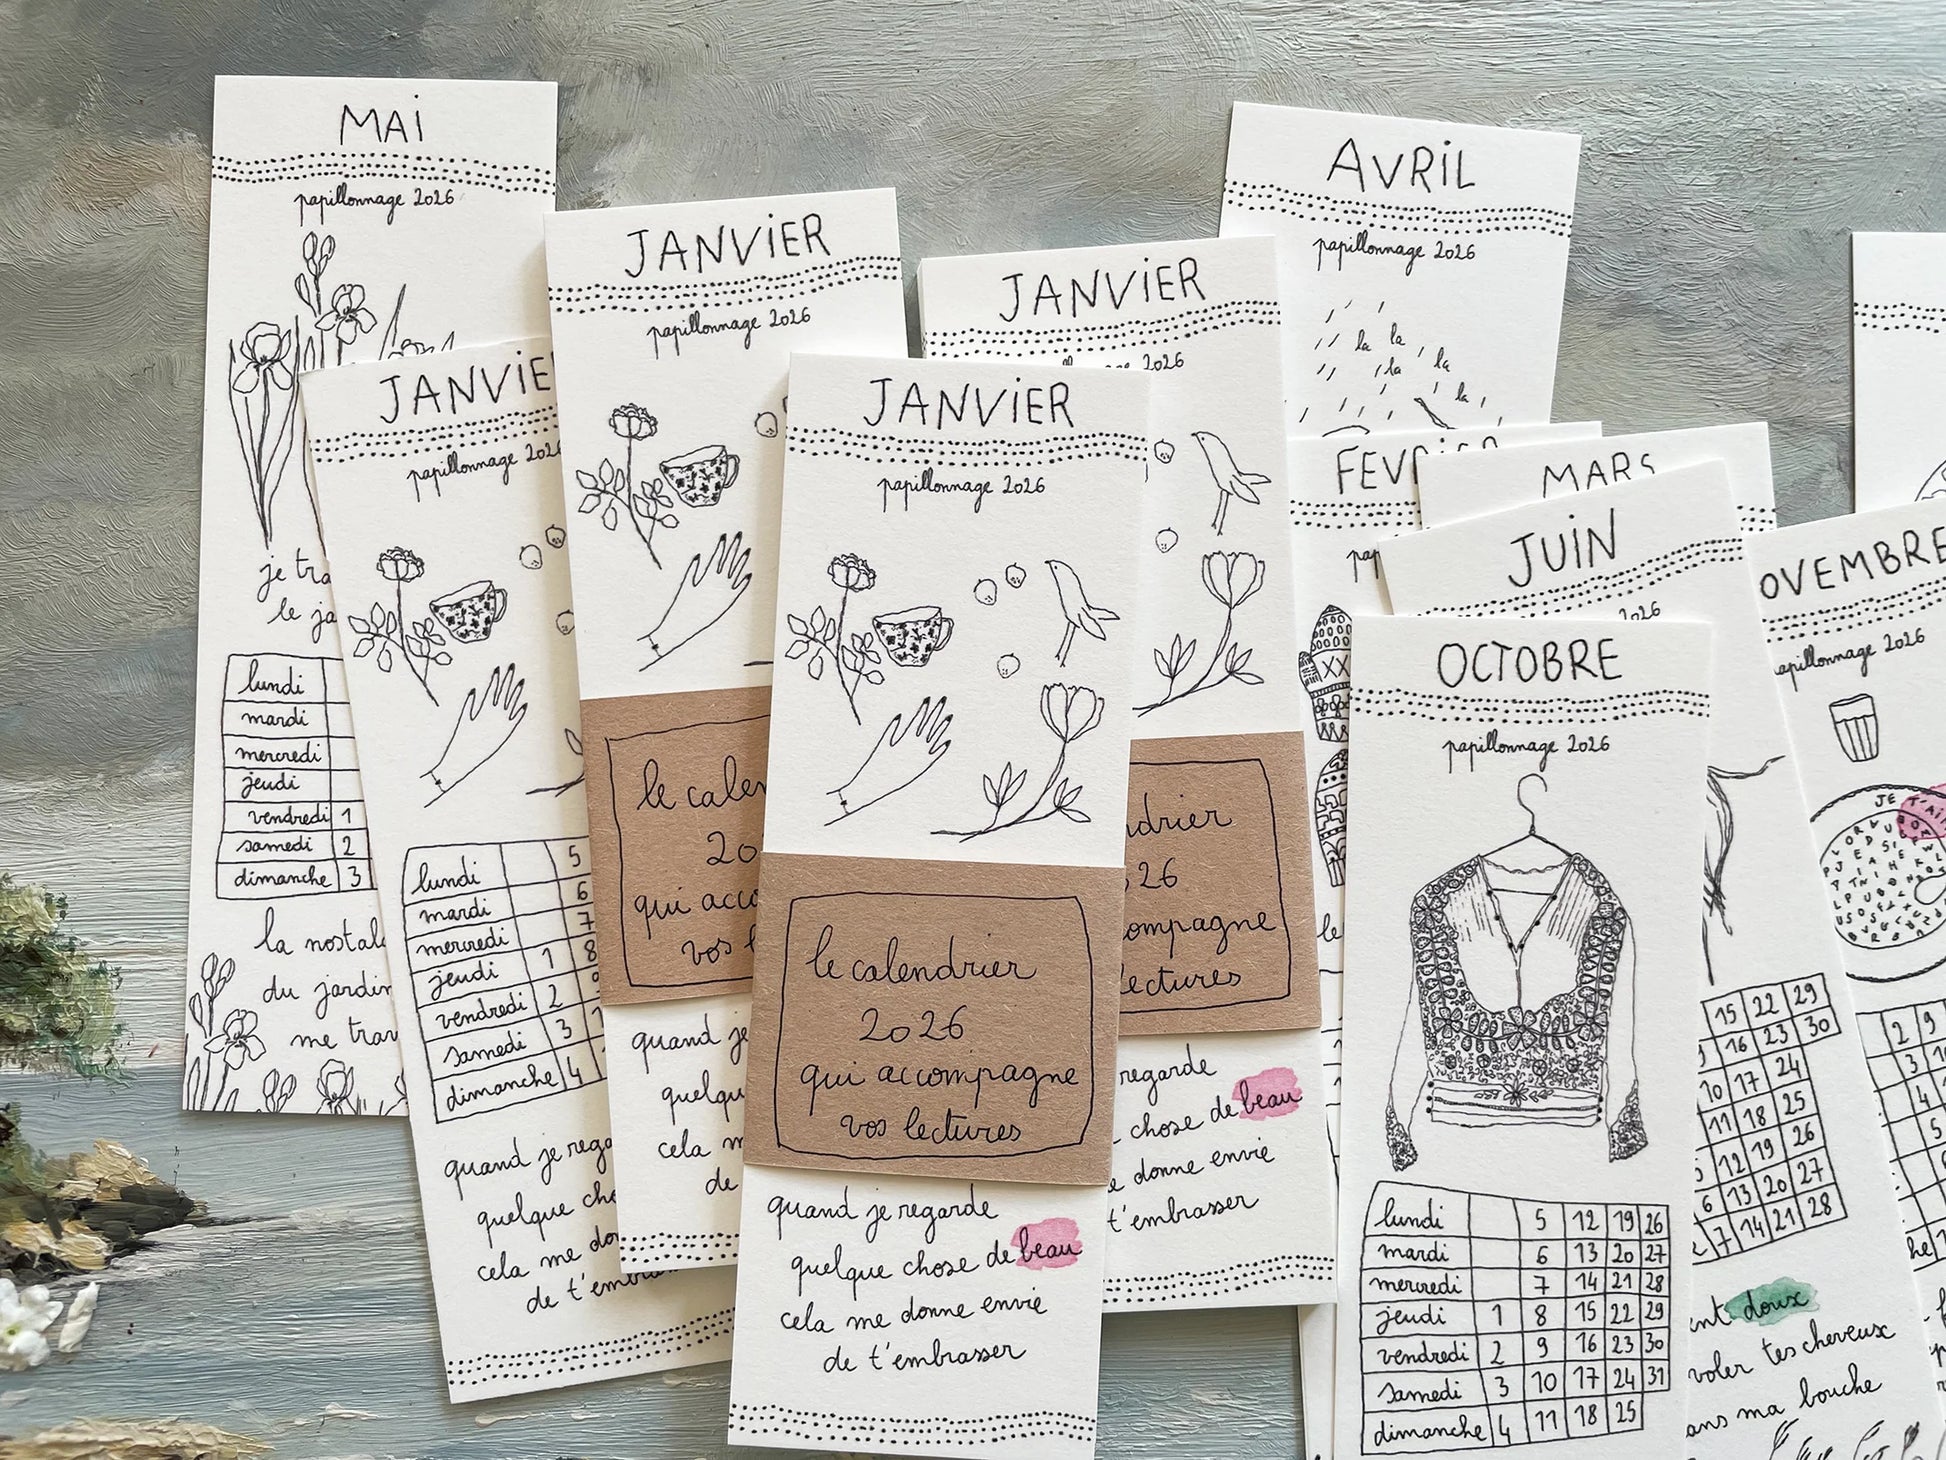 MAI
papillonnage 2026
je tra
le ja
lundi
mardi
mercredi
jeudi
vendredi 1
samedi 2
dimanche 3
la nostal
du jardin
me trav
JANVIE
papillonnage 202
lundi 5
mardi 6
mercredi 7
jeudi 1 8
vendredi 2 9
samedi 3
dimanche 4
quand je rega
quelque cho
cela me do
de t'embra
JANVIER
papillonnage 2026
le calen
20
qui acco
vos l
quand je
quelqu
cela m
de
JANVIER
papillonnage 2026
le calendrier
2026
qui accompagne
vos lectures
quand je regarde
quelque chose de beau
cela me donne envie
de t'embrasser
JANVIER
2026
ndrier
26
ompagne
lectures
regarde
chose de beau
donne envie
t'embrasser
AVRIL
papillonnage 2026
la la
la la
la
FEVRIER
pap
le
MARS
JUIN
2026
15 22 29
16 23 30
10 17 24
11 18 25
12 19 26
6 13 20 27
7 14 21 28
OCTOBRE
papillonnage 2026
lundi 5 12 19 26
mardi 6 13 20 27
mercredi 7 14 21 28
jeudi 1 8 15 22 29
vendredi 2 9 16 23 30
samedi 3 10 17 24 31
dimanche 4 11 18 25
ent doux
voler tes cheveux
ans ma bouche
OVEMBRE
papillonnage 2026
JE T'AIM
2 9
3 10
4
5
he